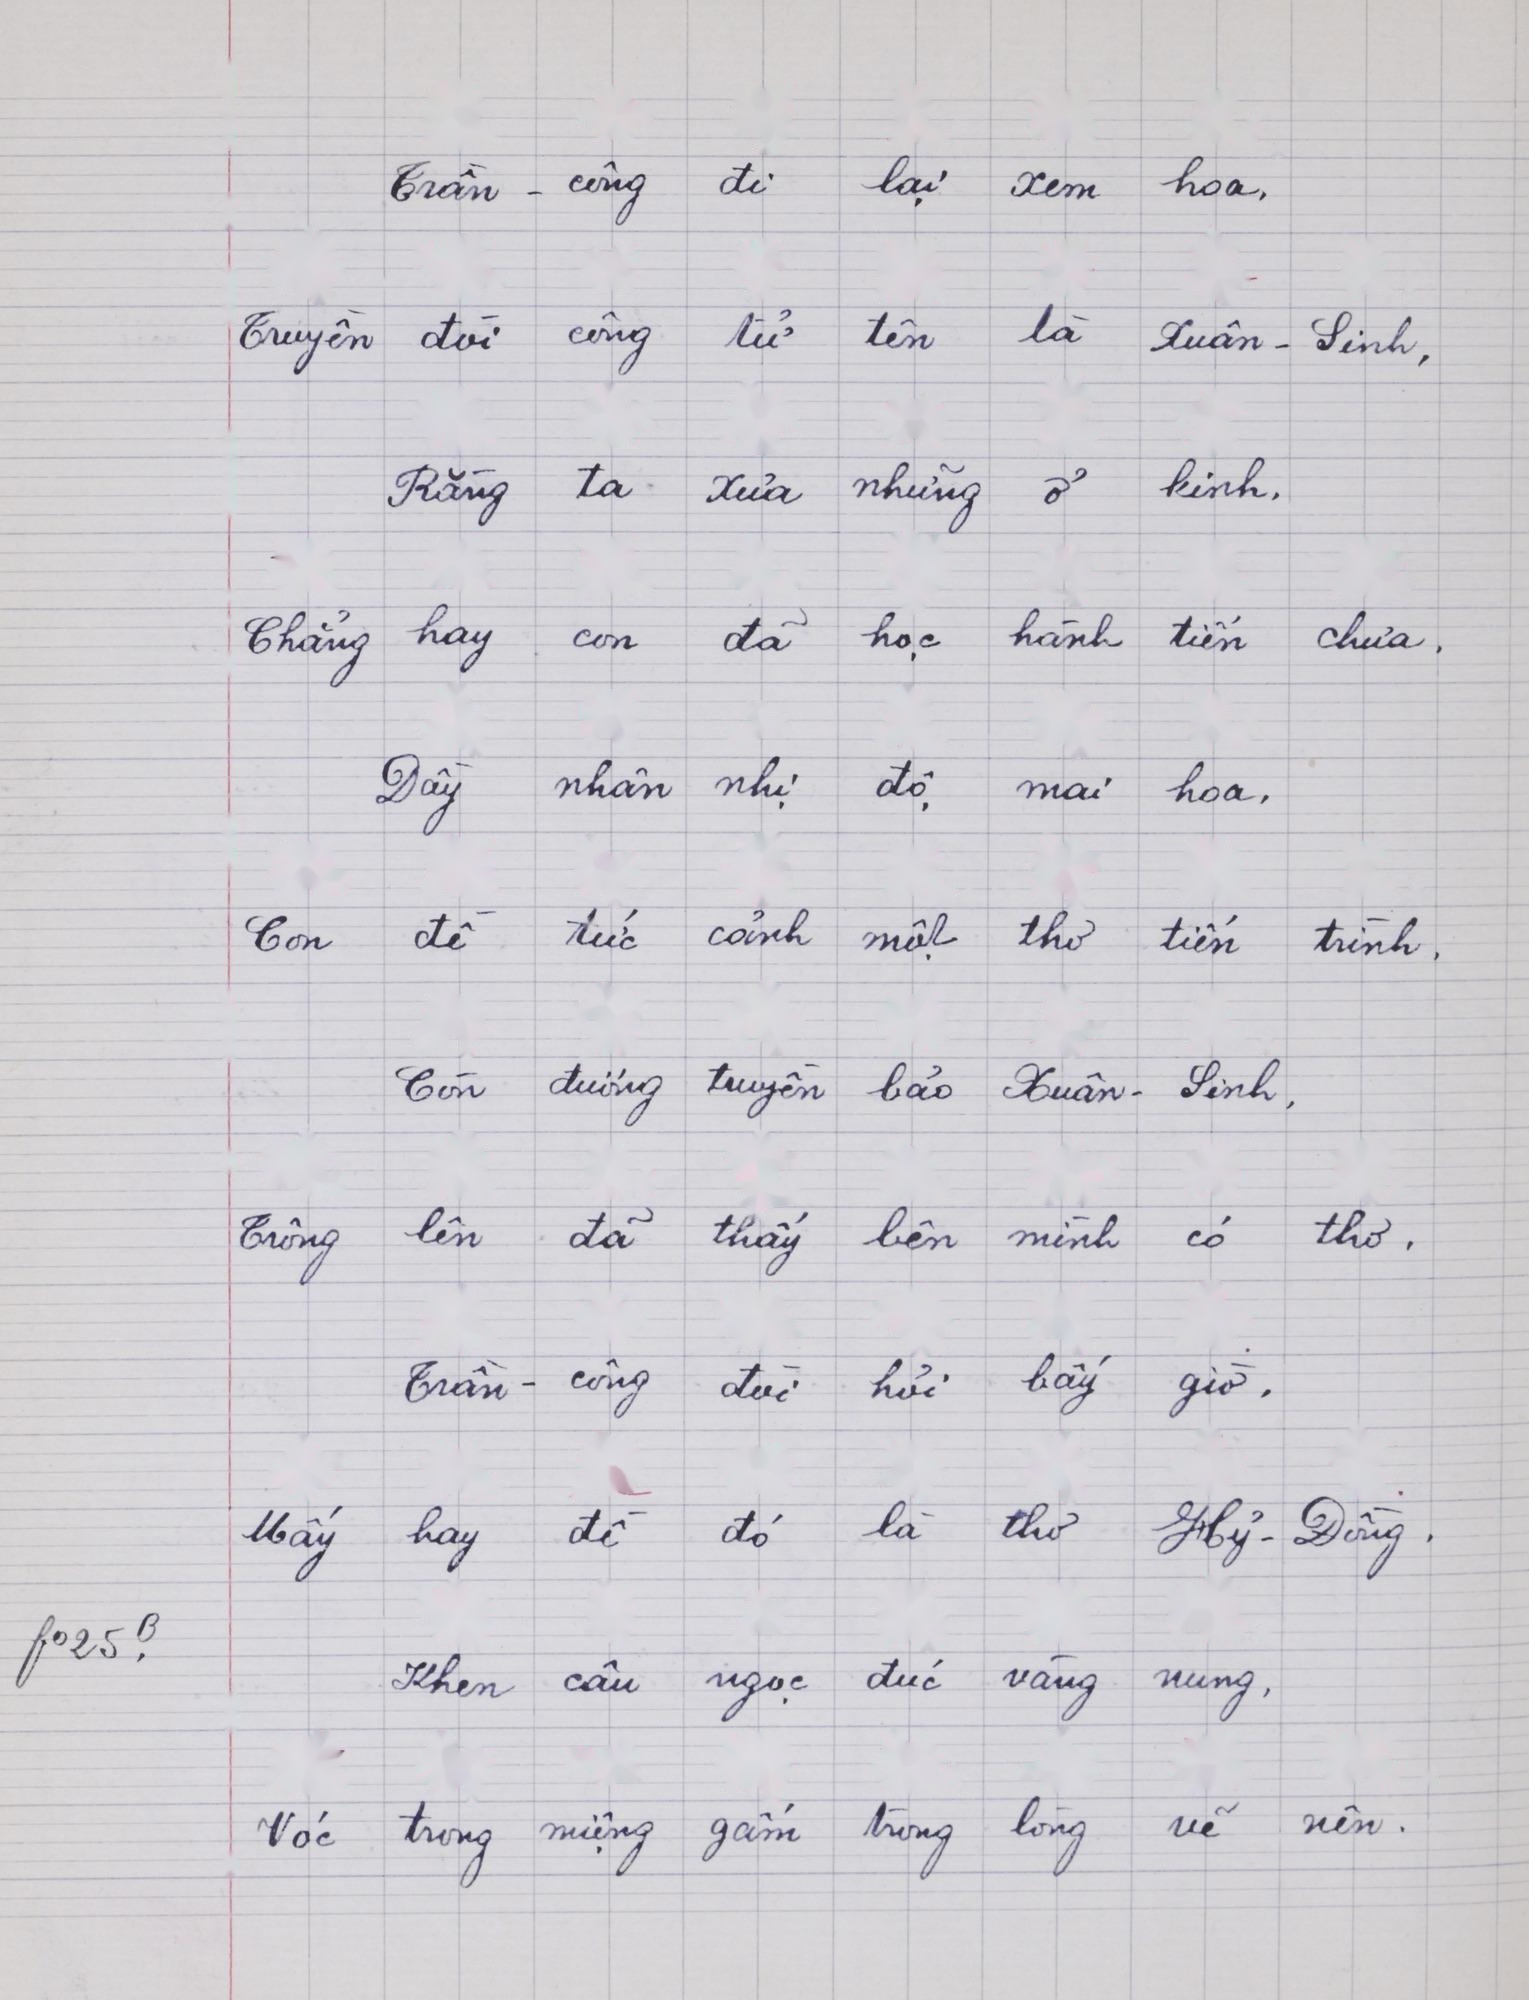 Trần - công đi lại xem hoa,
Truyền đòi công tử tên là Xuân - Sinh,
Rằng ta xưa những ở kinh,
Chẳng hay con đã học hành tiến chưa,
Dầy nhân nhị độ mai hoa,
Con đề tức cảnh một thơ tiến trình,
Còn đương truyền bảo Xuân - Sinh,
Trông lên đã thấy bên mình có thơ,
Trần - công đòi hỏi bấy giờ,
Mấy hay đề đó là thơ Hỷ - Đồng,
fo 25 B.
Khen câu ngọc đúc vàng nung,
Vóc trong miệng gấm trong lòng vẽ nên.